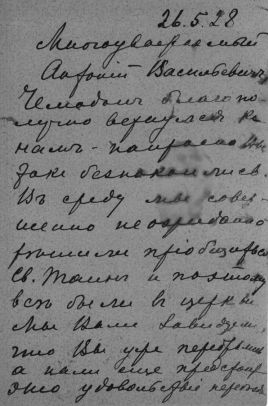 26.5.28
Многоуважаемый
Антоній Васильевичъ
Чемоданъ благопо-
лучно вернулся къ
намъ - напрасно Вы
таки безпокоились.
Въ среду мы совер-
шенно неожиданно
рѣшили пріобщиться
Св. Таинъ и поэтому
всѣ были в церкви
Мы Вамъ завидуемъ,
что Вы уже перебрались
а намъ еще предстоитъ
это удовольствіе